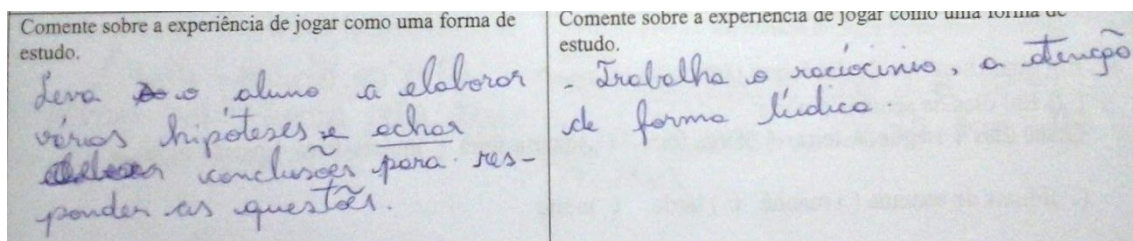 Comente sobre a experiência de jogar como uma forma de
estudo.
Leva o aluno a elaborar
várias hipóteses e achar
conclusões para res-
ponder as questões.
Comente sobre a experiência de jogar como uma forma de
estudo.
- Trabalha o raciocínio, a atenção
de forma lúdica